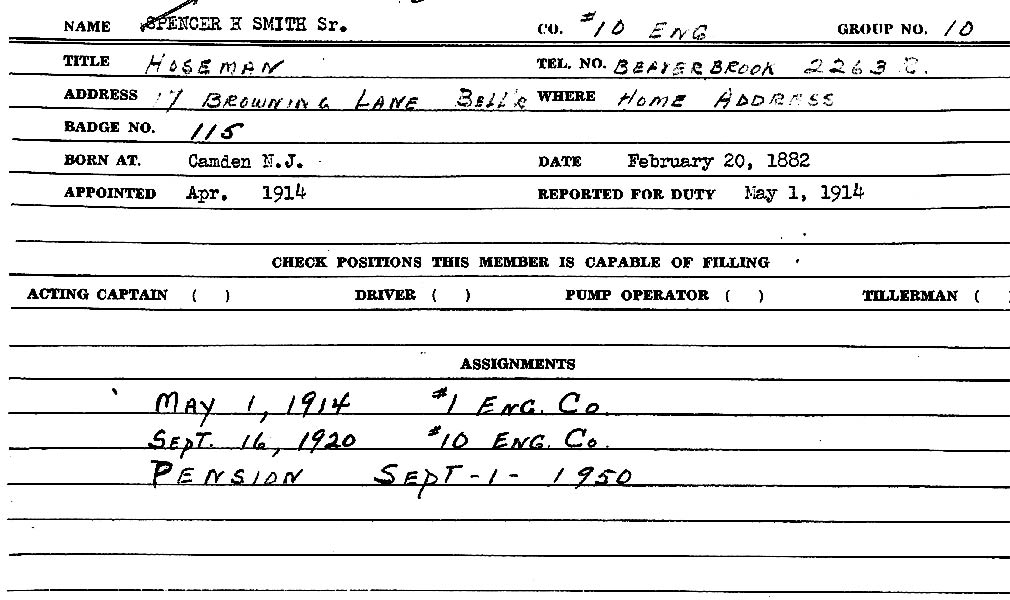 NAME SPENCER H SMITH Sr. CO. #10 ENG GROUP NO. 10
TITLE HOSEMAN TEL. NO. BEAVERBROOK 2263 C.
ADDRESS 17 BROWNING LANE Bell'r WHERE HOME ADDRESS
BADGE NO. 115
BORN AT. Camden N.J. DATE February 20, 1882
APPOINTED Apr. 1914 REPORTED FOR DUTY May 1, 1914
CHECK POSITIONS THIS MEMBER IS CAPABLE OF FILLING
ACTING CAPTAIN ( ) DRIVER ( ) PUMP OPERATOR ( ) TILLERMAN ( )
ASSIGNMENTS
MAY 1, 1914 #1 ENG. CO.
SEPT. 16, 1920 #10 ENG. CO.
PENSION SEPT-1- 1950